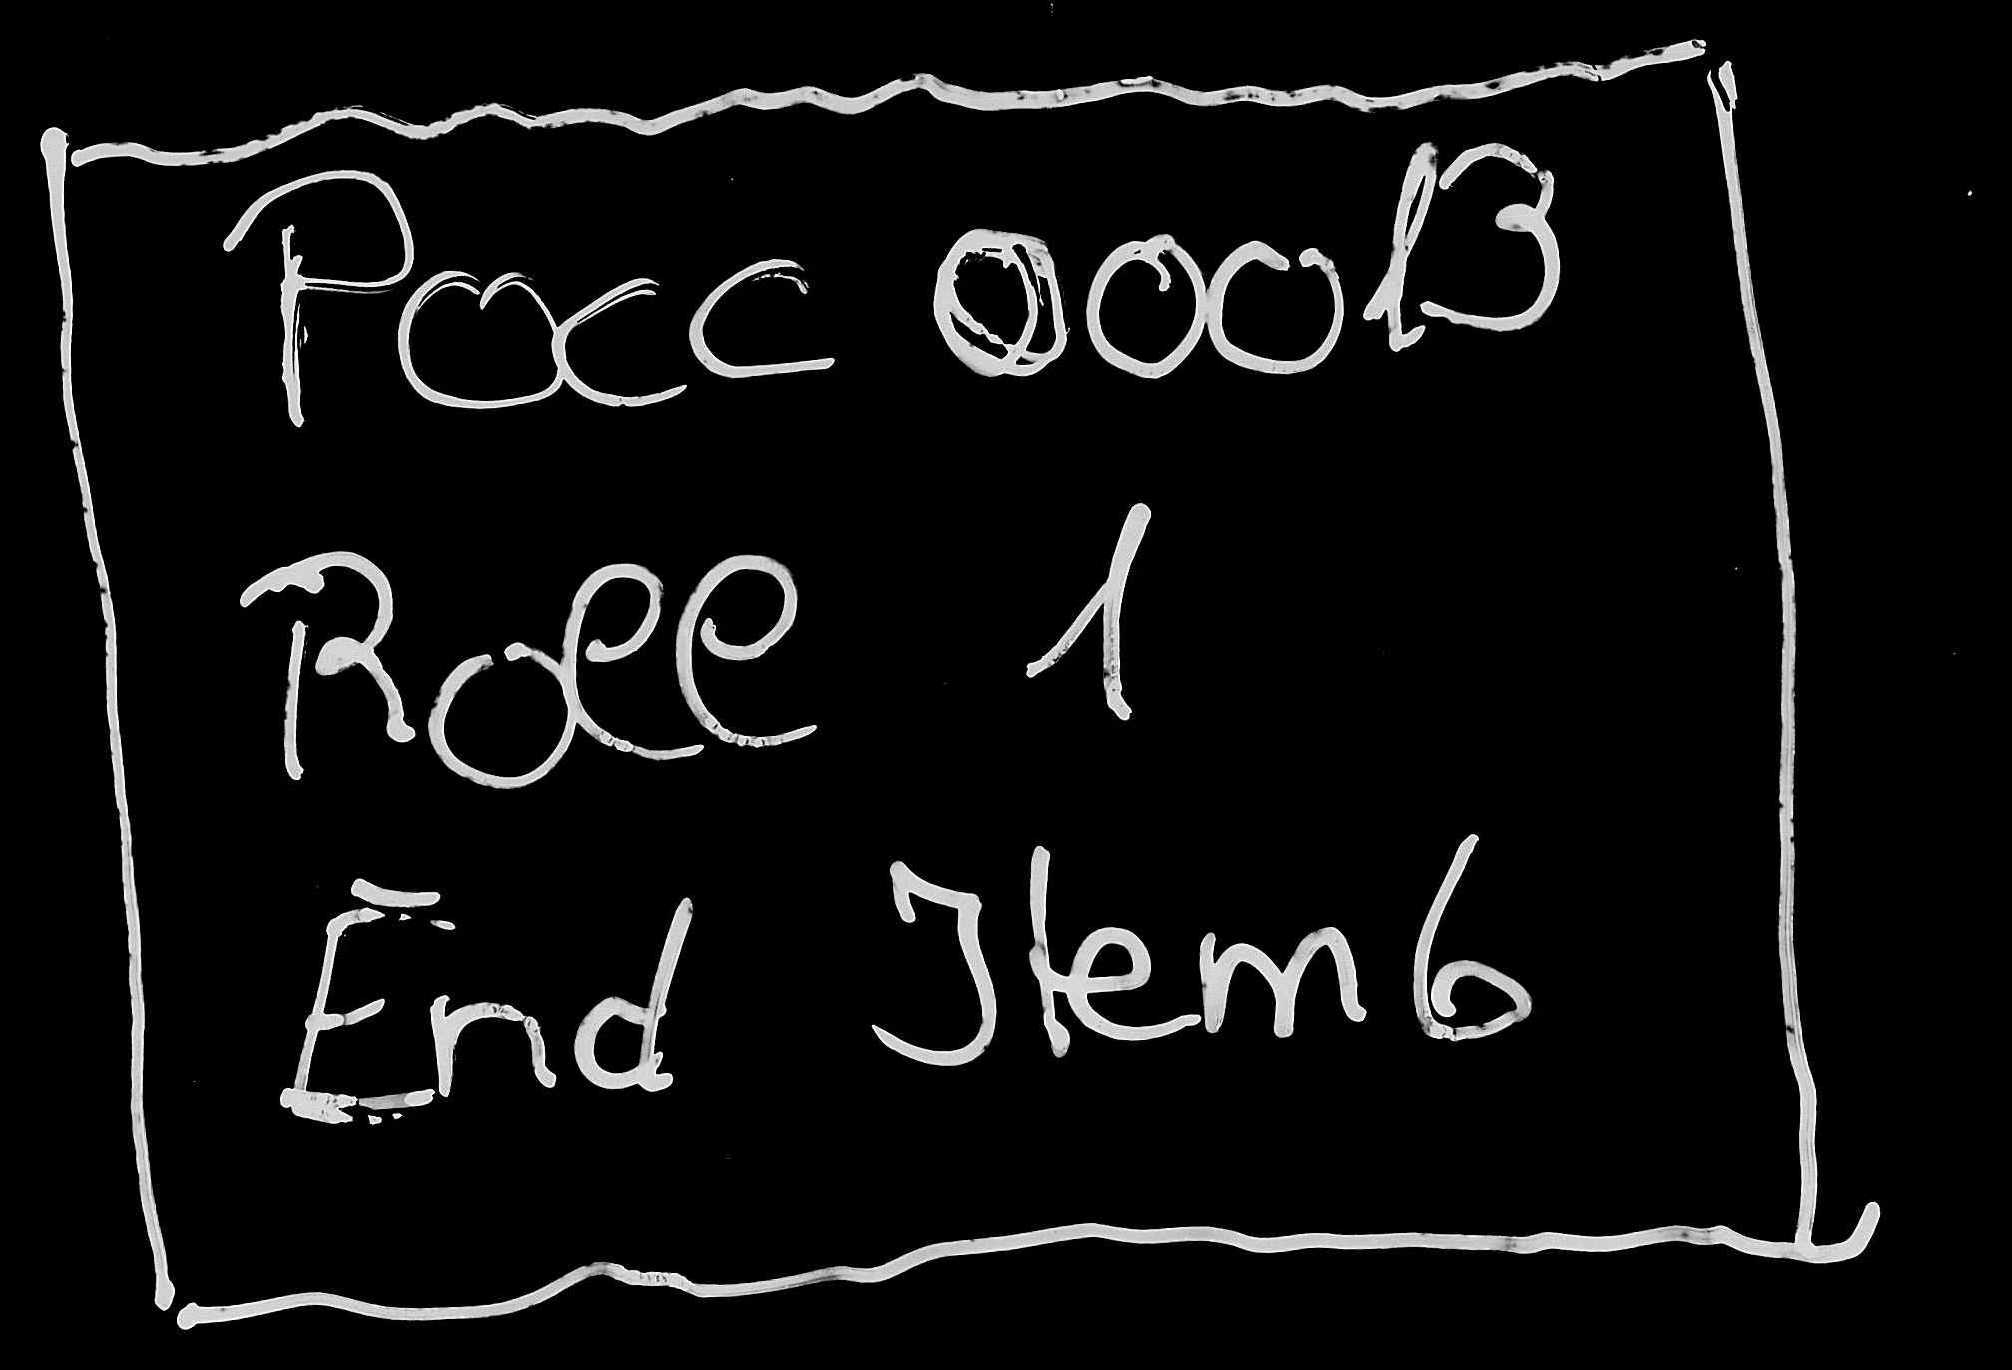 Pacc 00013
Roll 1
End Item 6